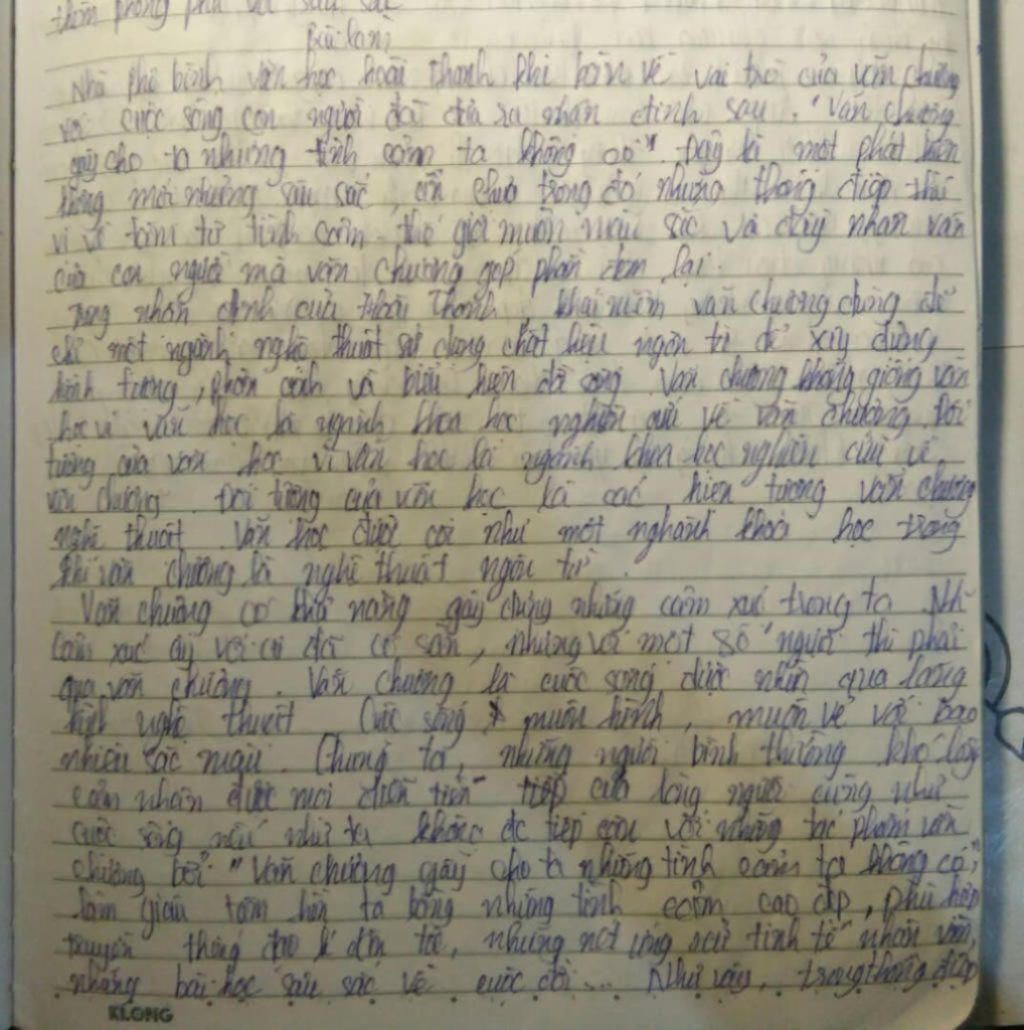 thêm phong phú và sâu sắc
Bài làm
Nhà phê bình văn học hoài thanh khi bàn về vai trò của văn chương
với cuộc sống con người đã đưa ra nhận định sau. "Văn chương
gây cho ta những tình cảm ta không có". Đây là một phát hiện
không mới nhưng sâu sắc, ẩn chứa trong đó những thông điệp thú
vị về tâm tư tình cảm thế giới muôn màu sắc và đầy nhân văn
của con người mà văn chương góp phần đem lại.
Trong nhận định của Hoài Thanh, khái niệm văn chương dùng để
chỉ một ngành nghệ thuật sử dụng chất liệu ngôn từ để xây dựng
hình tượng, phản ánh và biểu hiện đời sống. Văn chương không giống văn
học vì văn học là ngành khoa học nghiên cứu về văn chương. Đối
tượng của văn học vì văn học là ngành khoa học nghiên cứu về
văn chương. Đối tượng của văn học là các hiện tượng văn chương
nghệ thuật. Văn học được coi như một nghành khoa học trong
khi văn chương là nghệ thuật ngôn từ.
Văn chương có khả năng gây dựng những cảm xúc trong ta. Nh
cảm xúc ấy với có đã có sẵn, nhưng với một số người thì phải
qua văn chương. Văn chương là cuộc sống được nhìn qua lăng
kính nghệ thuật. Cuộc sống muôn hình, muôn vẻ với bao
nhiêu sắc màu. Chúng ta, những người bình thường khó lòng
cảm nhận được mọi diễn tiến tiếp của lòng người cũng như
cuộc sống nếu như ta không đc tiếp cận với những tác phẩm văn
chương bởi "Văn chương gây cho ta những tình cảm ta không có",
làm giàu tâm hồn ta bằng những tình cảm cao đẹp, phù hợp
truyền thống đạo lí dân tộc, những nét ứng xử tinh tế nhân văn,
những bài học sâu sắc về cuộc đời... Như vậy, trong thông điệp
KLONG